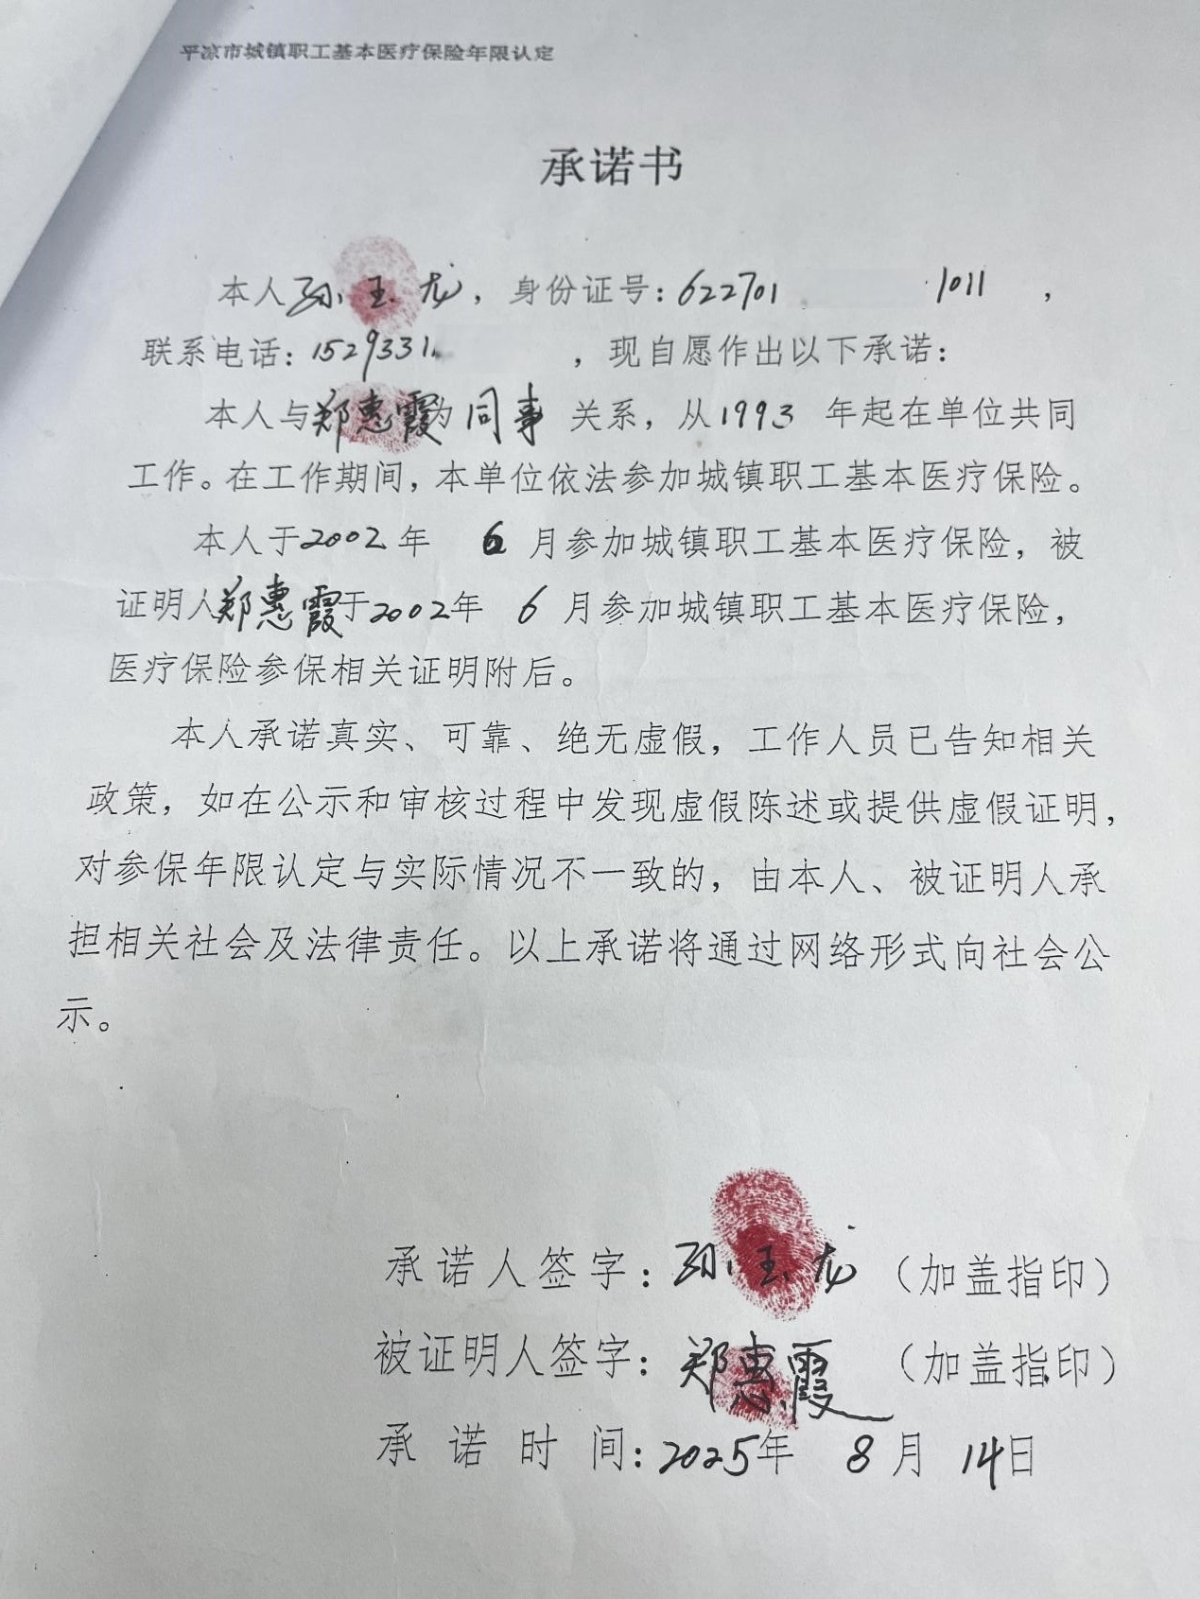 平凉市城镇职工基本医疗保险年限认定
承诺书
本人孙玉龙，身份证号：622701 1011，
联系电话：1529331 ，现自愿作出以下承诺：
本人与郑惠霞为同事关系，从1993年起在单位共同
工作。在工作期间，本单位依法参加城镇职工基本医疗保险。
本人于2002年 6月参加城镇职工基本医疗保险，被
证明人郑惠霞于2002年 6月参加城镇职工基本医疗保险，
医疗保险参保相关证明附后。
本人承诺真实、可靠、绝无虚假，工作人员已告知相关
政策，如在公示和审核过程中发现虚假陈述或提供虚假证明，
对参保年限认定与实际情况不一致的，由本人、被证明人承
担相关社会及法律责任。以上承诺将通过网络形式向社会公
示。
承诺人签字：孙玉龙（加盖指印）
被证明人签字：郑惠霞（加盖指印）
承诺时间：2025年 8月 14日